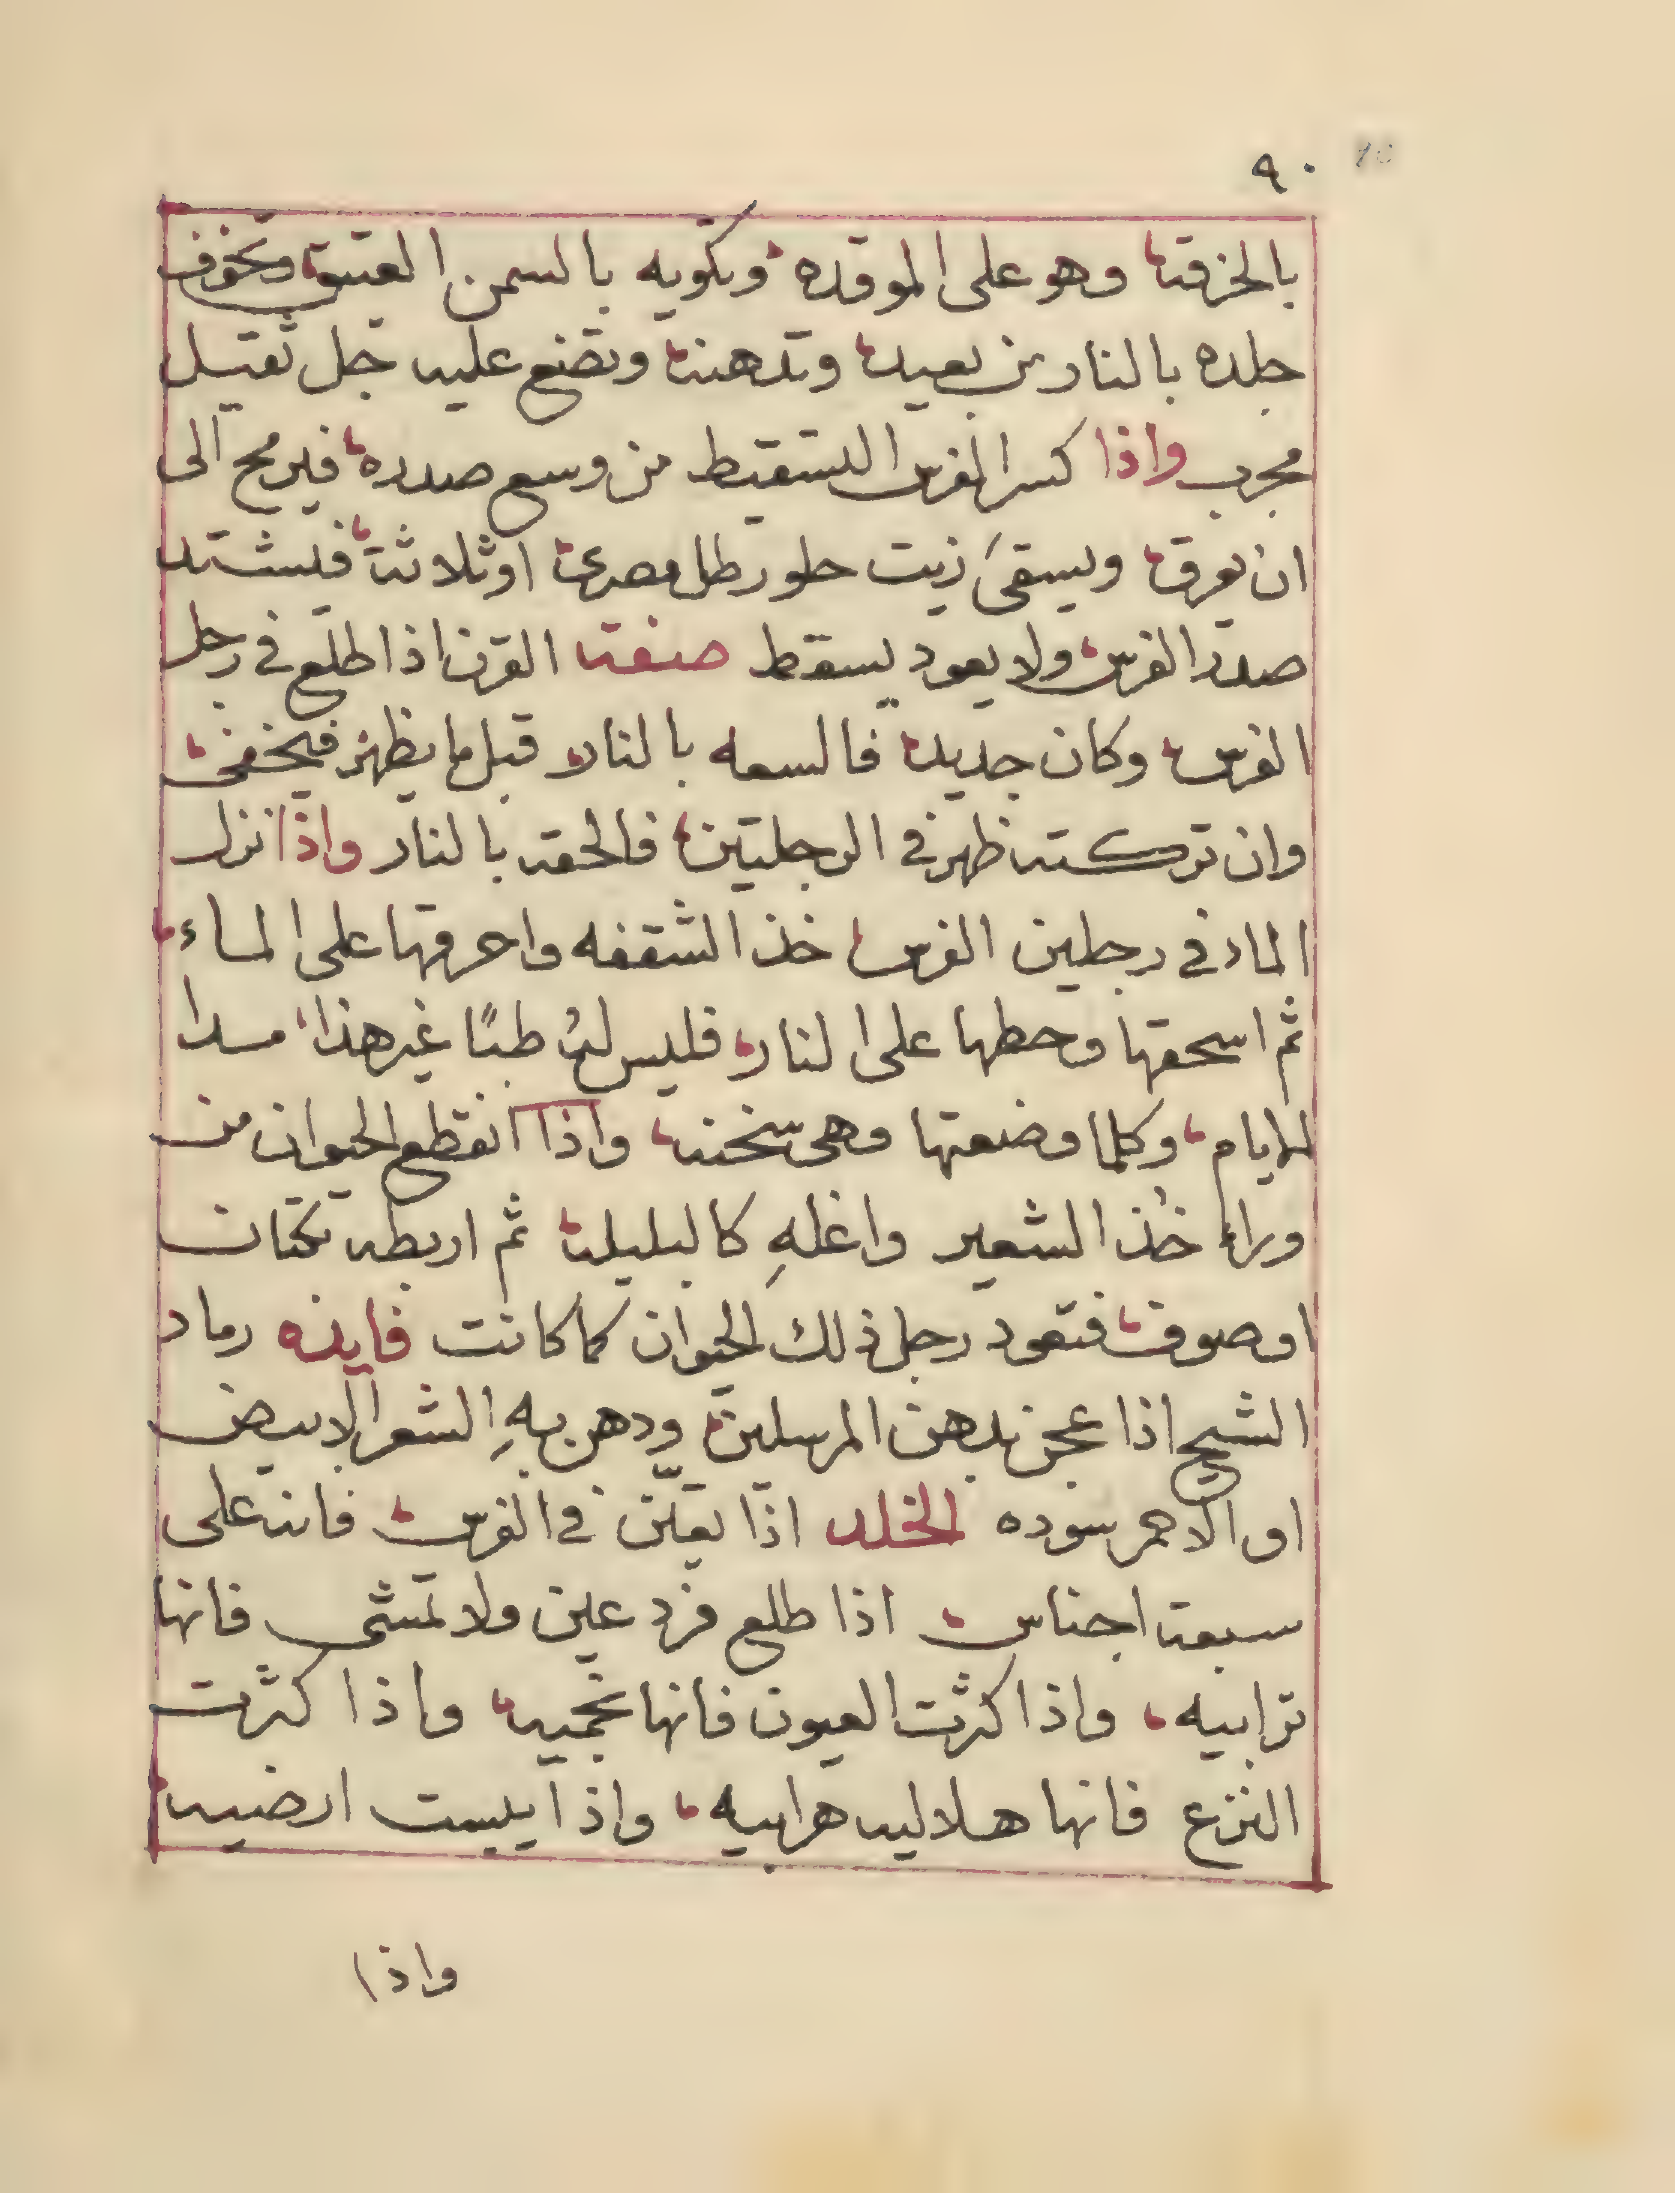 ٩٠
بالخرقه وهو على الموقده وتكويه بالسمن العتيق وتخوف
جلده بالنار من بعيد وتدهنه وتضع عليه جل ثقيل
مجرب واذا كسر الفرس اللسقيط من وسع صدره فيرمح الى
ان يعرق ويسقى زيت حلو رطل مصرى او ثلاثة فيشتد
صدر الفرس ولا يعود يسقط صفة القرن اذا طلع في رجل
الفرس وكان جديد فالسعه بالنار قبل ما يظهر فيخفى
وان تركته ظهر في الرجلتين فالحقه بالنار واذا نزل
الماء في رجلين الفرس خذ الشقفه واحرقها على الماء
ثم اسحقها وحطها على النار فليس له طبًا غير هذا مسدا
الايام وكلما وضعتها وهي سخنه واذا انقطع الحيوان من
وراء خذ الشعير واغلهِ كالبليله ثم اربطه بكتان
او صوف فتعود رجل ذلك الحيوان كما كانت فايده رماد
الشيح اذا عجن بدهن المرسلين ودهن بهِ الشعر الابيض
او الاحمر سوده الخلد اذا تعيّن في الفرس فانه على
سبعة اجناس اذا طلع فرد عين ولا تمشى فانها
ترابيه واذا كثرت العيون فانها نجميه واذا كثرت
النزع فانها هلاليه هرابيه واذا يبست ارضيه
واذا